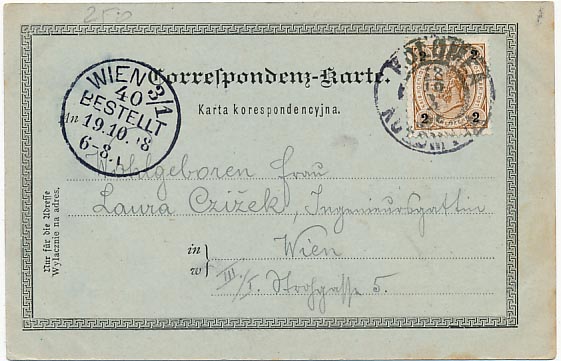 25.-
Correspondenz-Karte.
Karta korespondencyjna.
WIEN 3/1
40
BESTELLT
19.10
6-8.
An
2 2
Wohlgeboren Frau
Laura Czižek, Ingenieursgattin
in
w
Wien
III/1. Strohgasse 5.
Nur für die Adresse
Wyłącznie na adres.